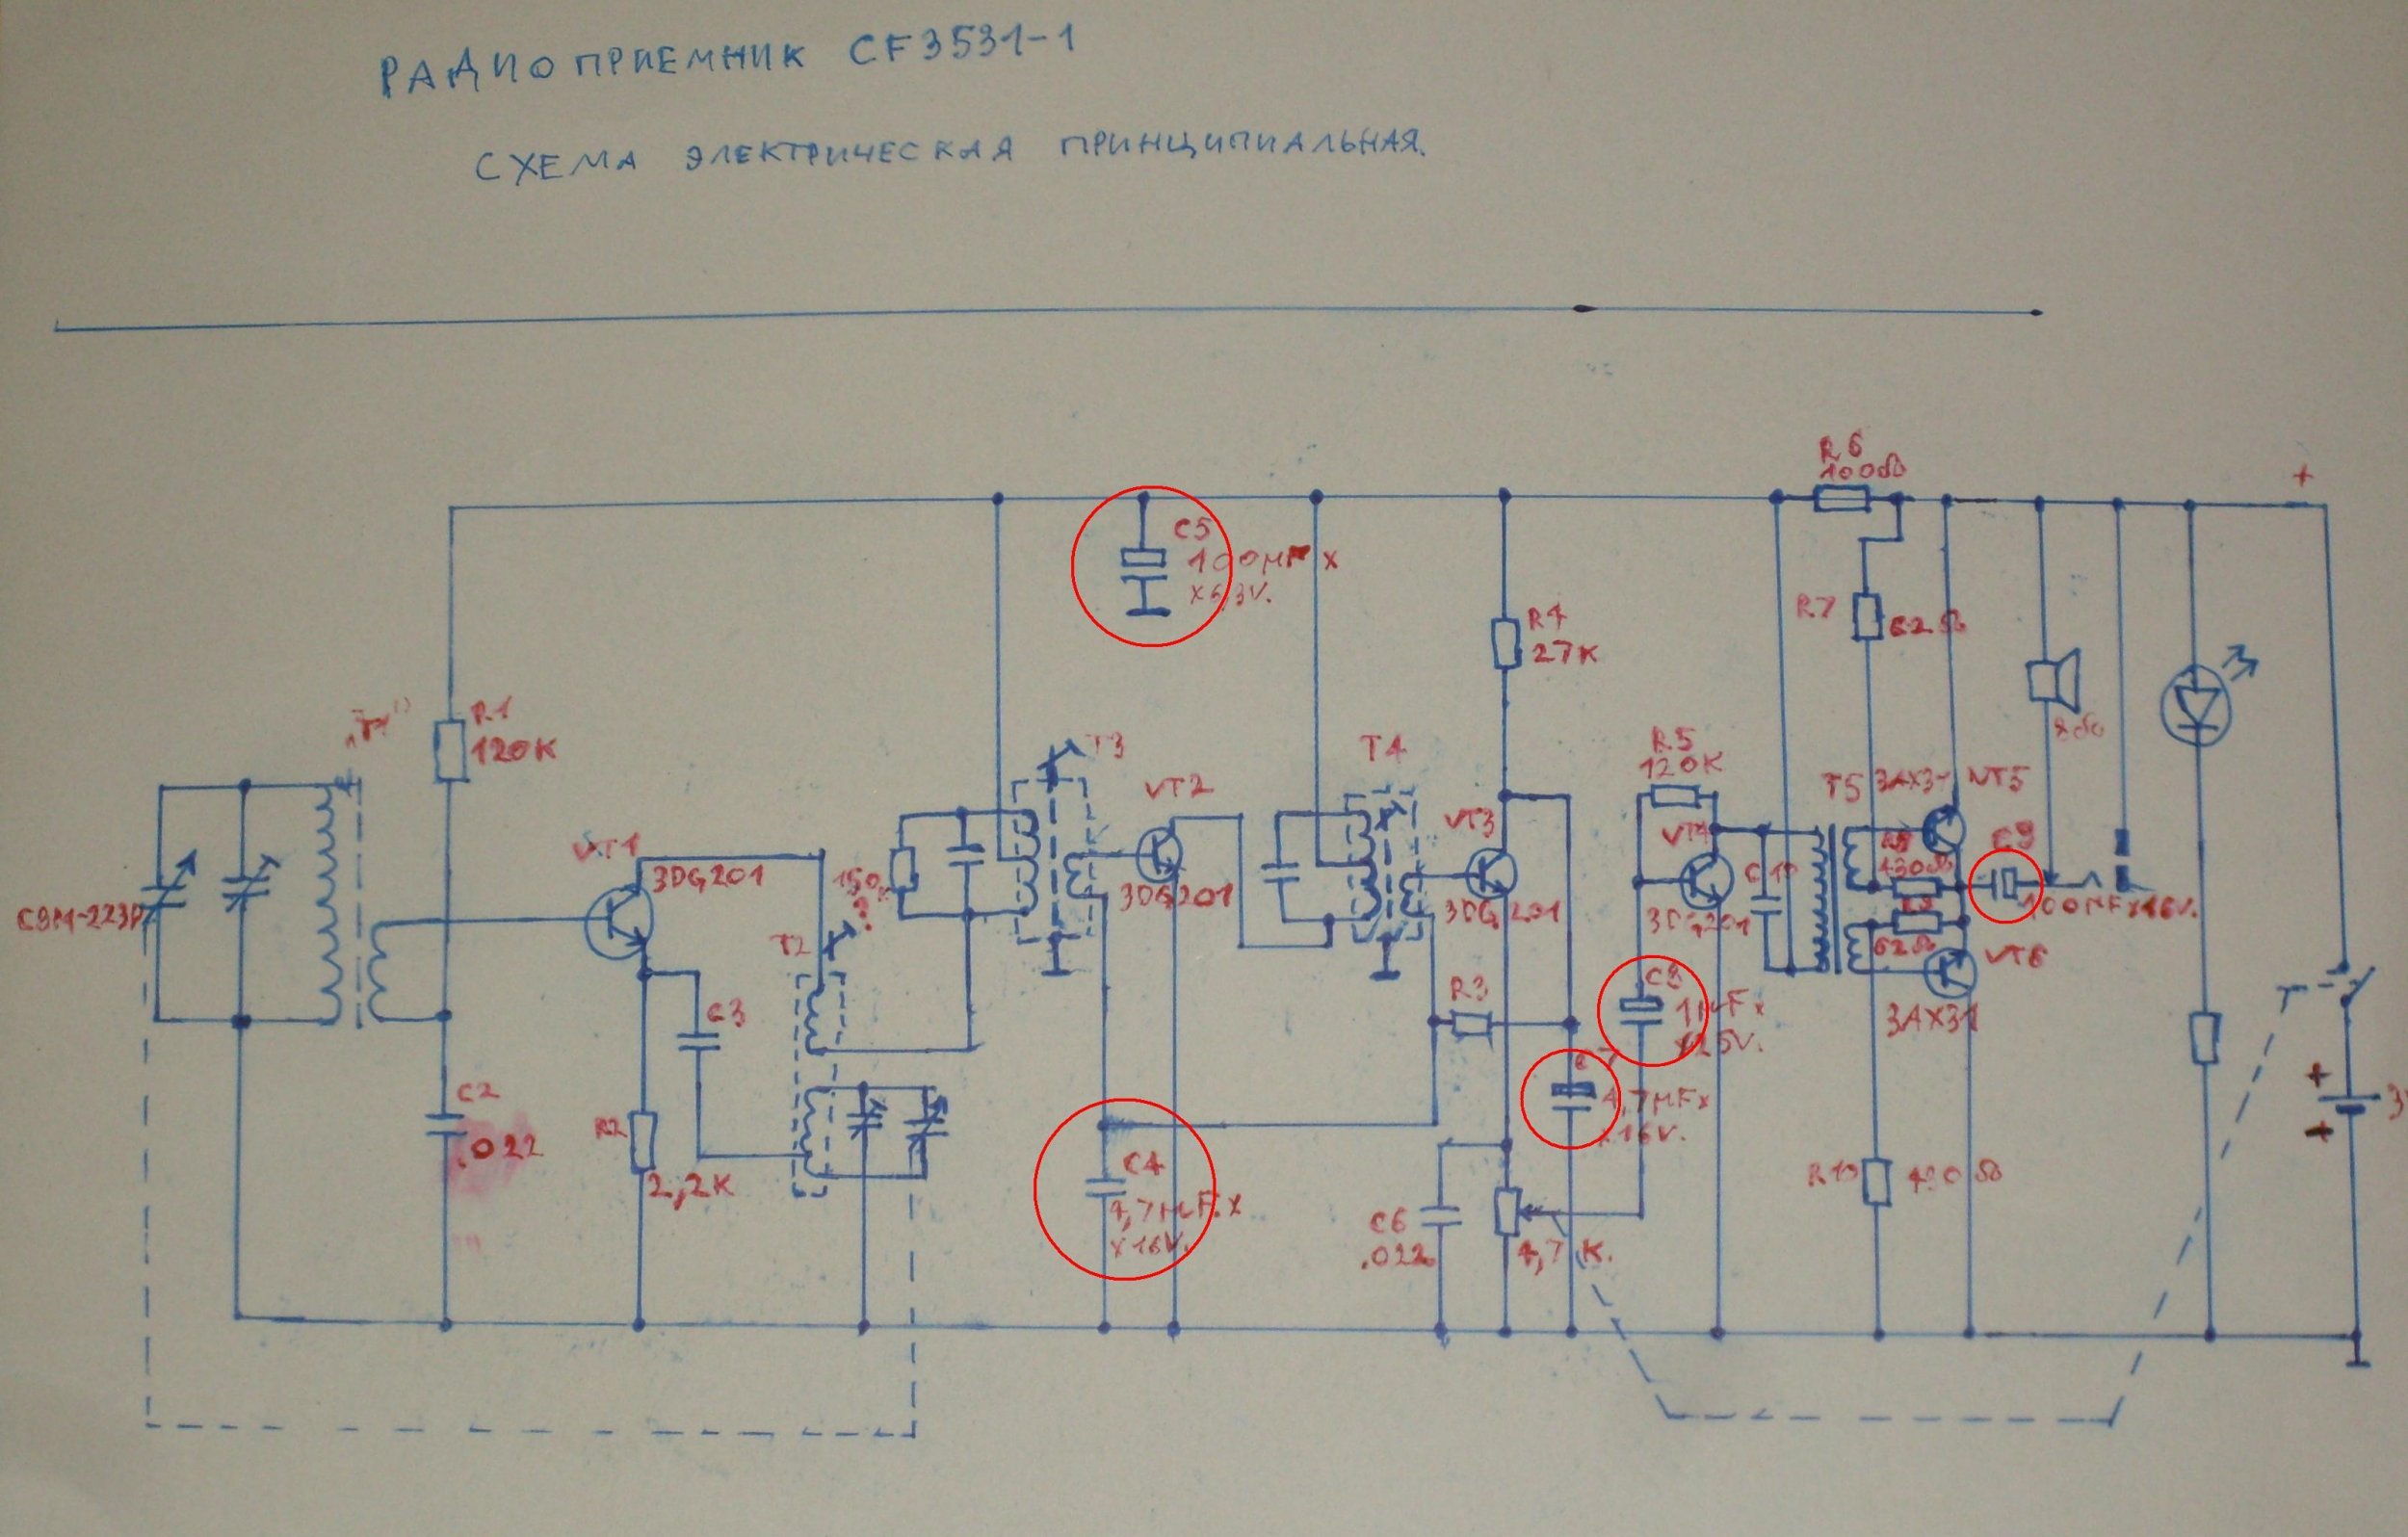 РАДИОПРИЕМНИК CF3531-1
СХЕМА ЭЛЕКТРИЧЕСКАЯ ПРИНЦИПИАЛЬНАЯ.
R6
100Ω
+
C5
100MF x
x6,3V.
R4
27K
R7
62Ω
8Ω
R1
120K
T3
VT2
3DG201
T4
VT3
3DG201
R5
120K
VT4
3DG201
C10
T5
3AX31
VT5
R8
130Ω
C9
100MFx16V.
R9
62Ω
VT6
3AX31
VT1
3DG201
150
?
T2
CBM-223P
C3
R3
C8
1MFx
x25V.
C7
4,7MFx
x16V.
C2
.022
R2
2,2K
C4
4,7MF.x
x16V.
C6
.022
4,7K.
R10
430Ω
+
3V